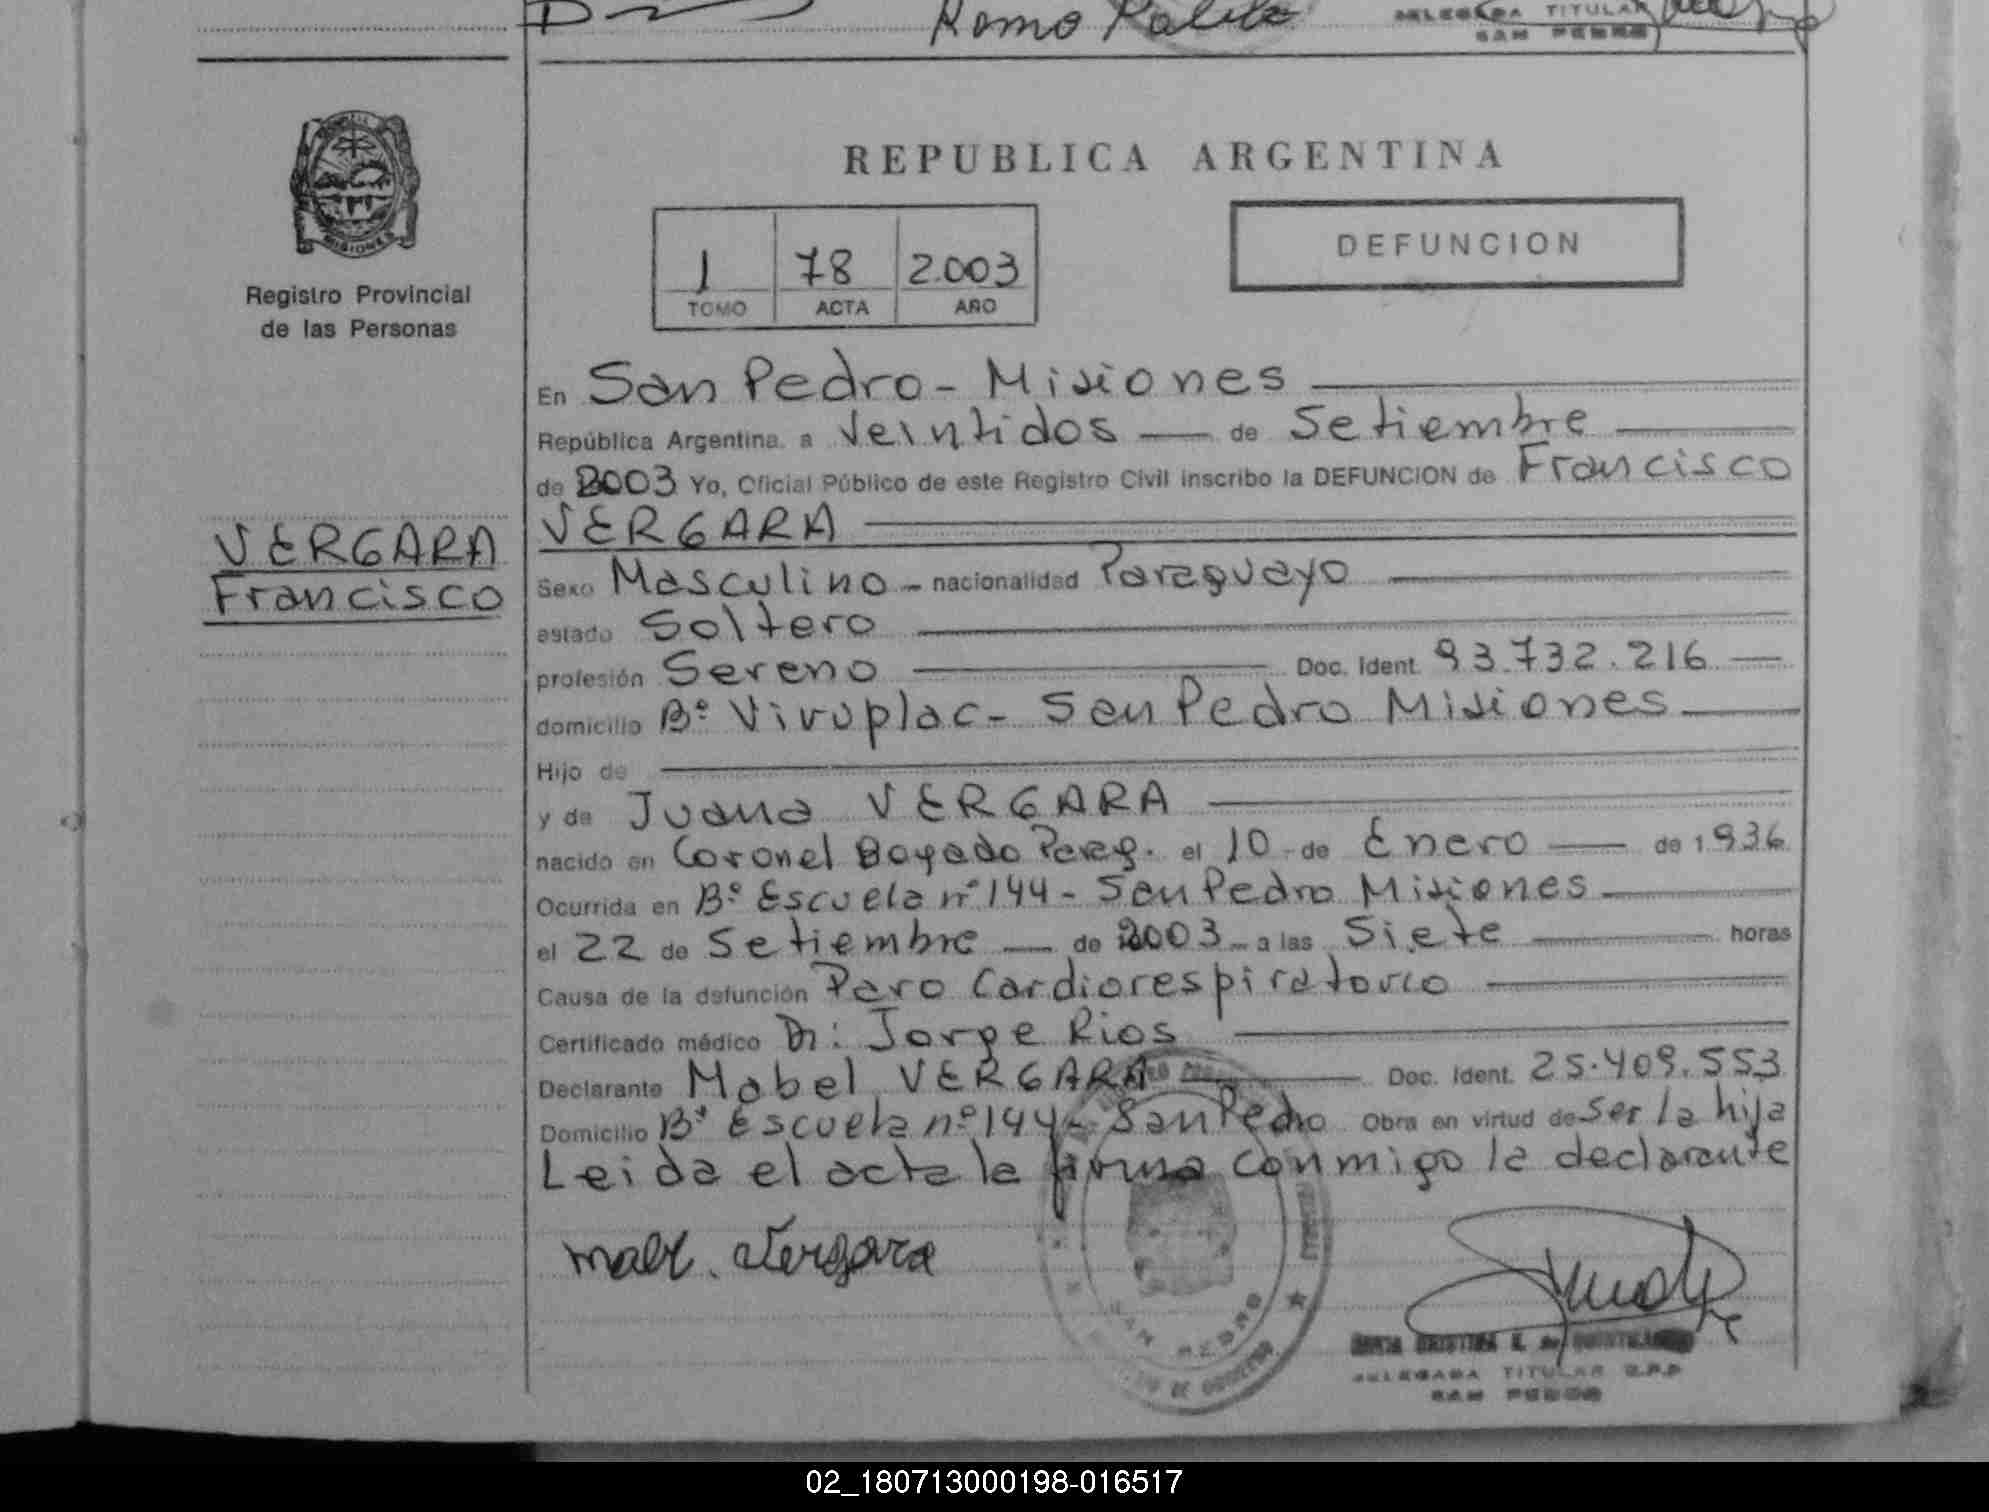 Romo
DELEGADA TITULAR
SAN PEDRO
MISIONES
Registro Provincial
de las Personas
REPUBLICA ARGENTINA
1 78 2.003
TOMO ACTA AÑO
DEFUNCION
En San Pedro - Misiones
República Argentina, a Veintidos de Setiembre
de 2003 Yo, Oficial Público de este Registro Civil inscribo la DEFUNCION de Francisco
VERGARA
VERGARA
Francisco
Sexo Masculino - nacionalidad Paraguayo
estado Soltero
profesión Sereno Doc. Ident. 93.732.216
domicilio Bº Viruplac - San Pedro Misiones
Hijo de
y de Juana VERGARA
nacido en Coronel Bogado Parag. el 10 de Enero de 1.936
Ocurrida en Bº Escuela nº 144 - San Pedro Misiones
el 22 de Setiembre de 2003 a las Siete horas
Causa de la defunción Paro Cardiorespiratorio
Certificado médico Dr: Jorge Rios
Declarante Mabel VERGARA Doc. Ident. 25.409.553
Domicilio Bº Escuela nº 144 - San Pedro Obra en virtud de ser la hija
Leida el acta la firma conmigo la declarante
Vergara
SAN PEDRO
DE GOBIERNO
CRISTINA
DELEGADA TITULAR R.P.P
SAN PEDRO
02_180713000198-016517